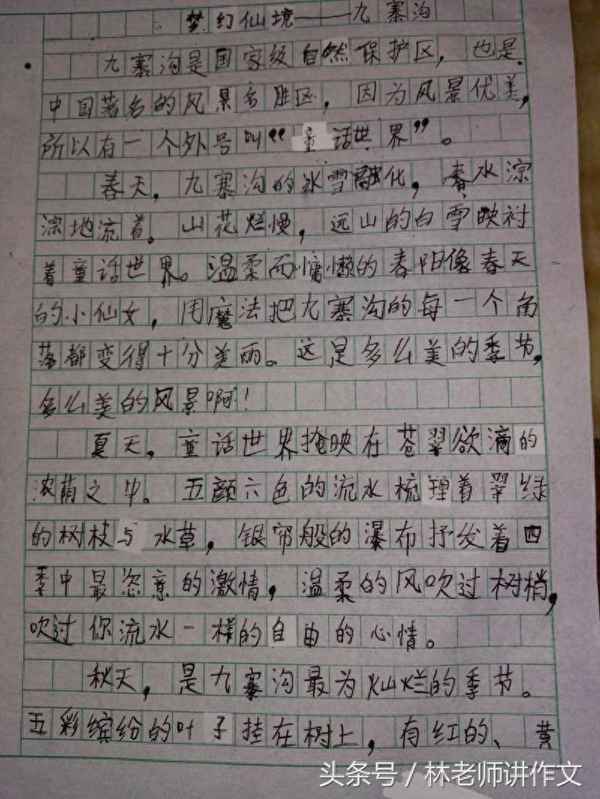 梦幻仙境——九寨沟
九寨沟是国家级自然保护区，也是
中国著名的风景名胜区，因为风景优美，
所以有一个外号叫“童话世界”。
春天，九寨沟的冰雪融化，春水淙
淙地流着。山花烂慢，远山的白雪映衬
着童话世界。温柔而慵懒的春阳像春天
的小仙女，用魔法把九寨沟的每一个角
落都变得十分美丽。这是多么美的季节，
多么美的风景啊！
夏天，童话世界掩映在苍翠欲滴的
浓荫之中。五颜六色的流水梳理着翠绿
的树枝与水草，银帘般的瀑布抒发着四
季中最恣意的激情，温柔的风吹过树梢，
吹过你流水一样的自由的心情。
秋天，是九寨沟最为灿烂的季节。
五彩缤纷的叶子挂在树上，有红的、黄
头条号／林老师讲作文